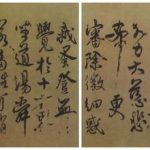 力大慈悲
希更
審除微細惑
我早登無
覺於十方界
坐道場舜
若多